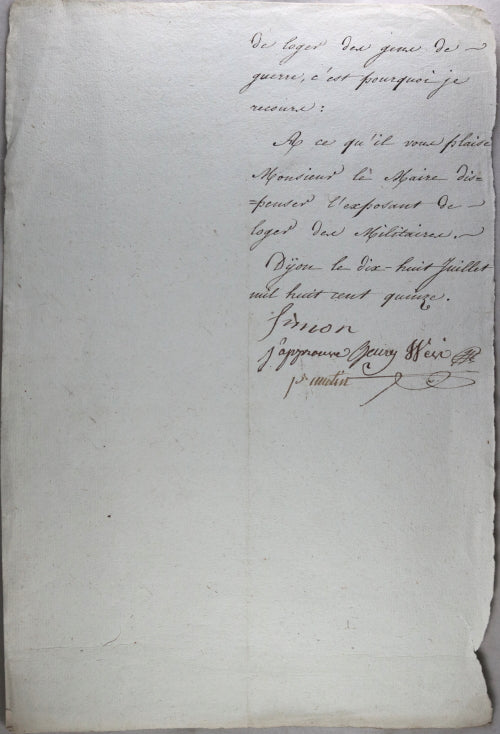 de loger des gens de -
guerre, c'est pourquoi je
recours :
A ce qu'il vous plaise
Monsieur le Maire dis=
=penser l'exposant de -
loger des Militaires. -
Dijon le dix-huit Juillet
mil huit cent quinze.
Simon
j'approuve